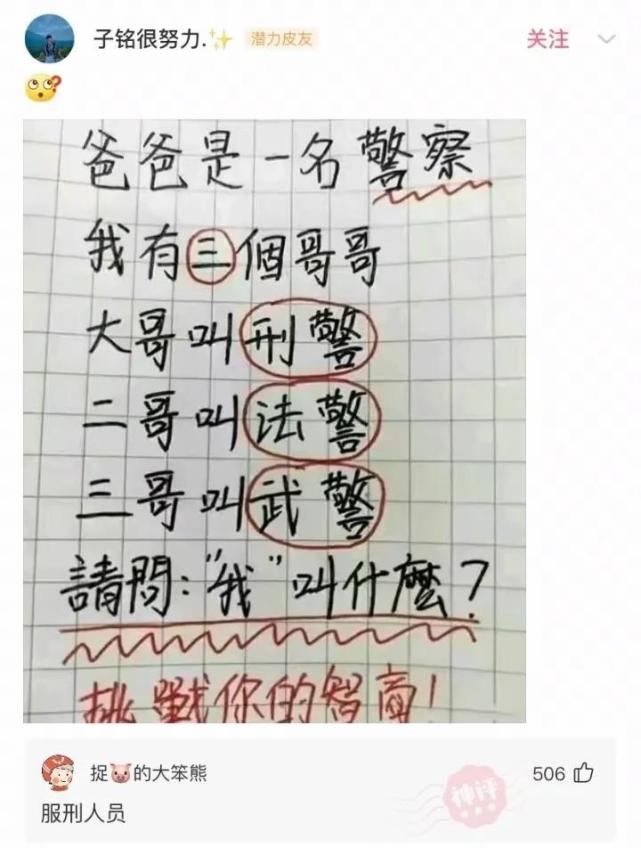 子铭很努力.✨ 潜力皮友 关注
爸爸是一名警察
我有三個哥哥
大哥叫刑警
二哥叫法警
三哥叫武警
請問:"我"叫什麼?
挑戰你的智商!
捉🐷的大笨熊 506
服刑人员
神评